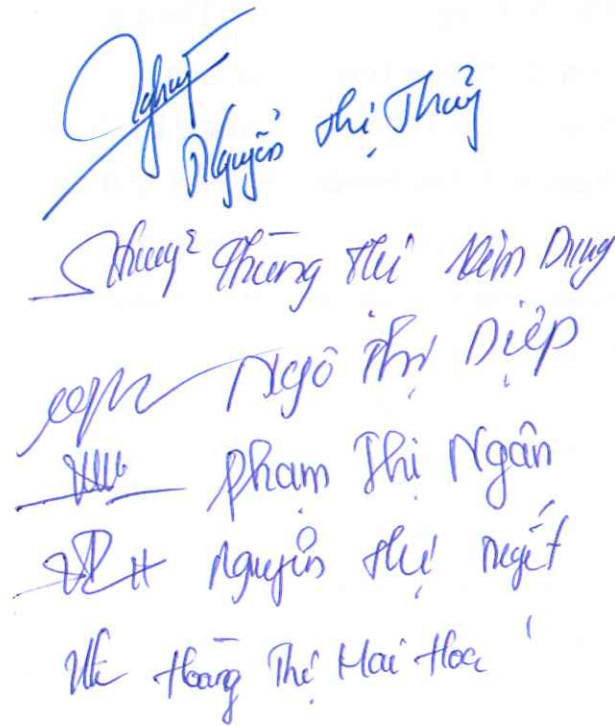 Nguyễn Thị Thủy
Phùng Thị Diễm Dung
Ngô Thị Diệp
Phạm Thị Ngân
Nguyễn Thị Nguyệt
Hoàng Thị Mai Hoa